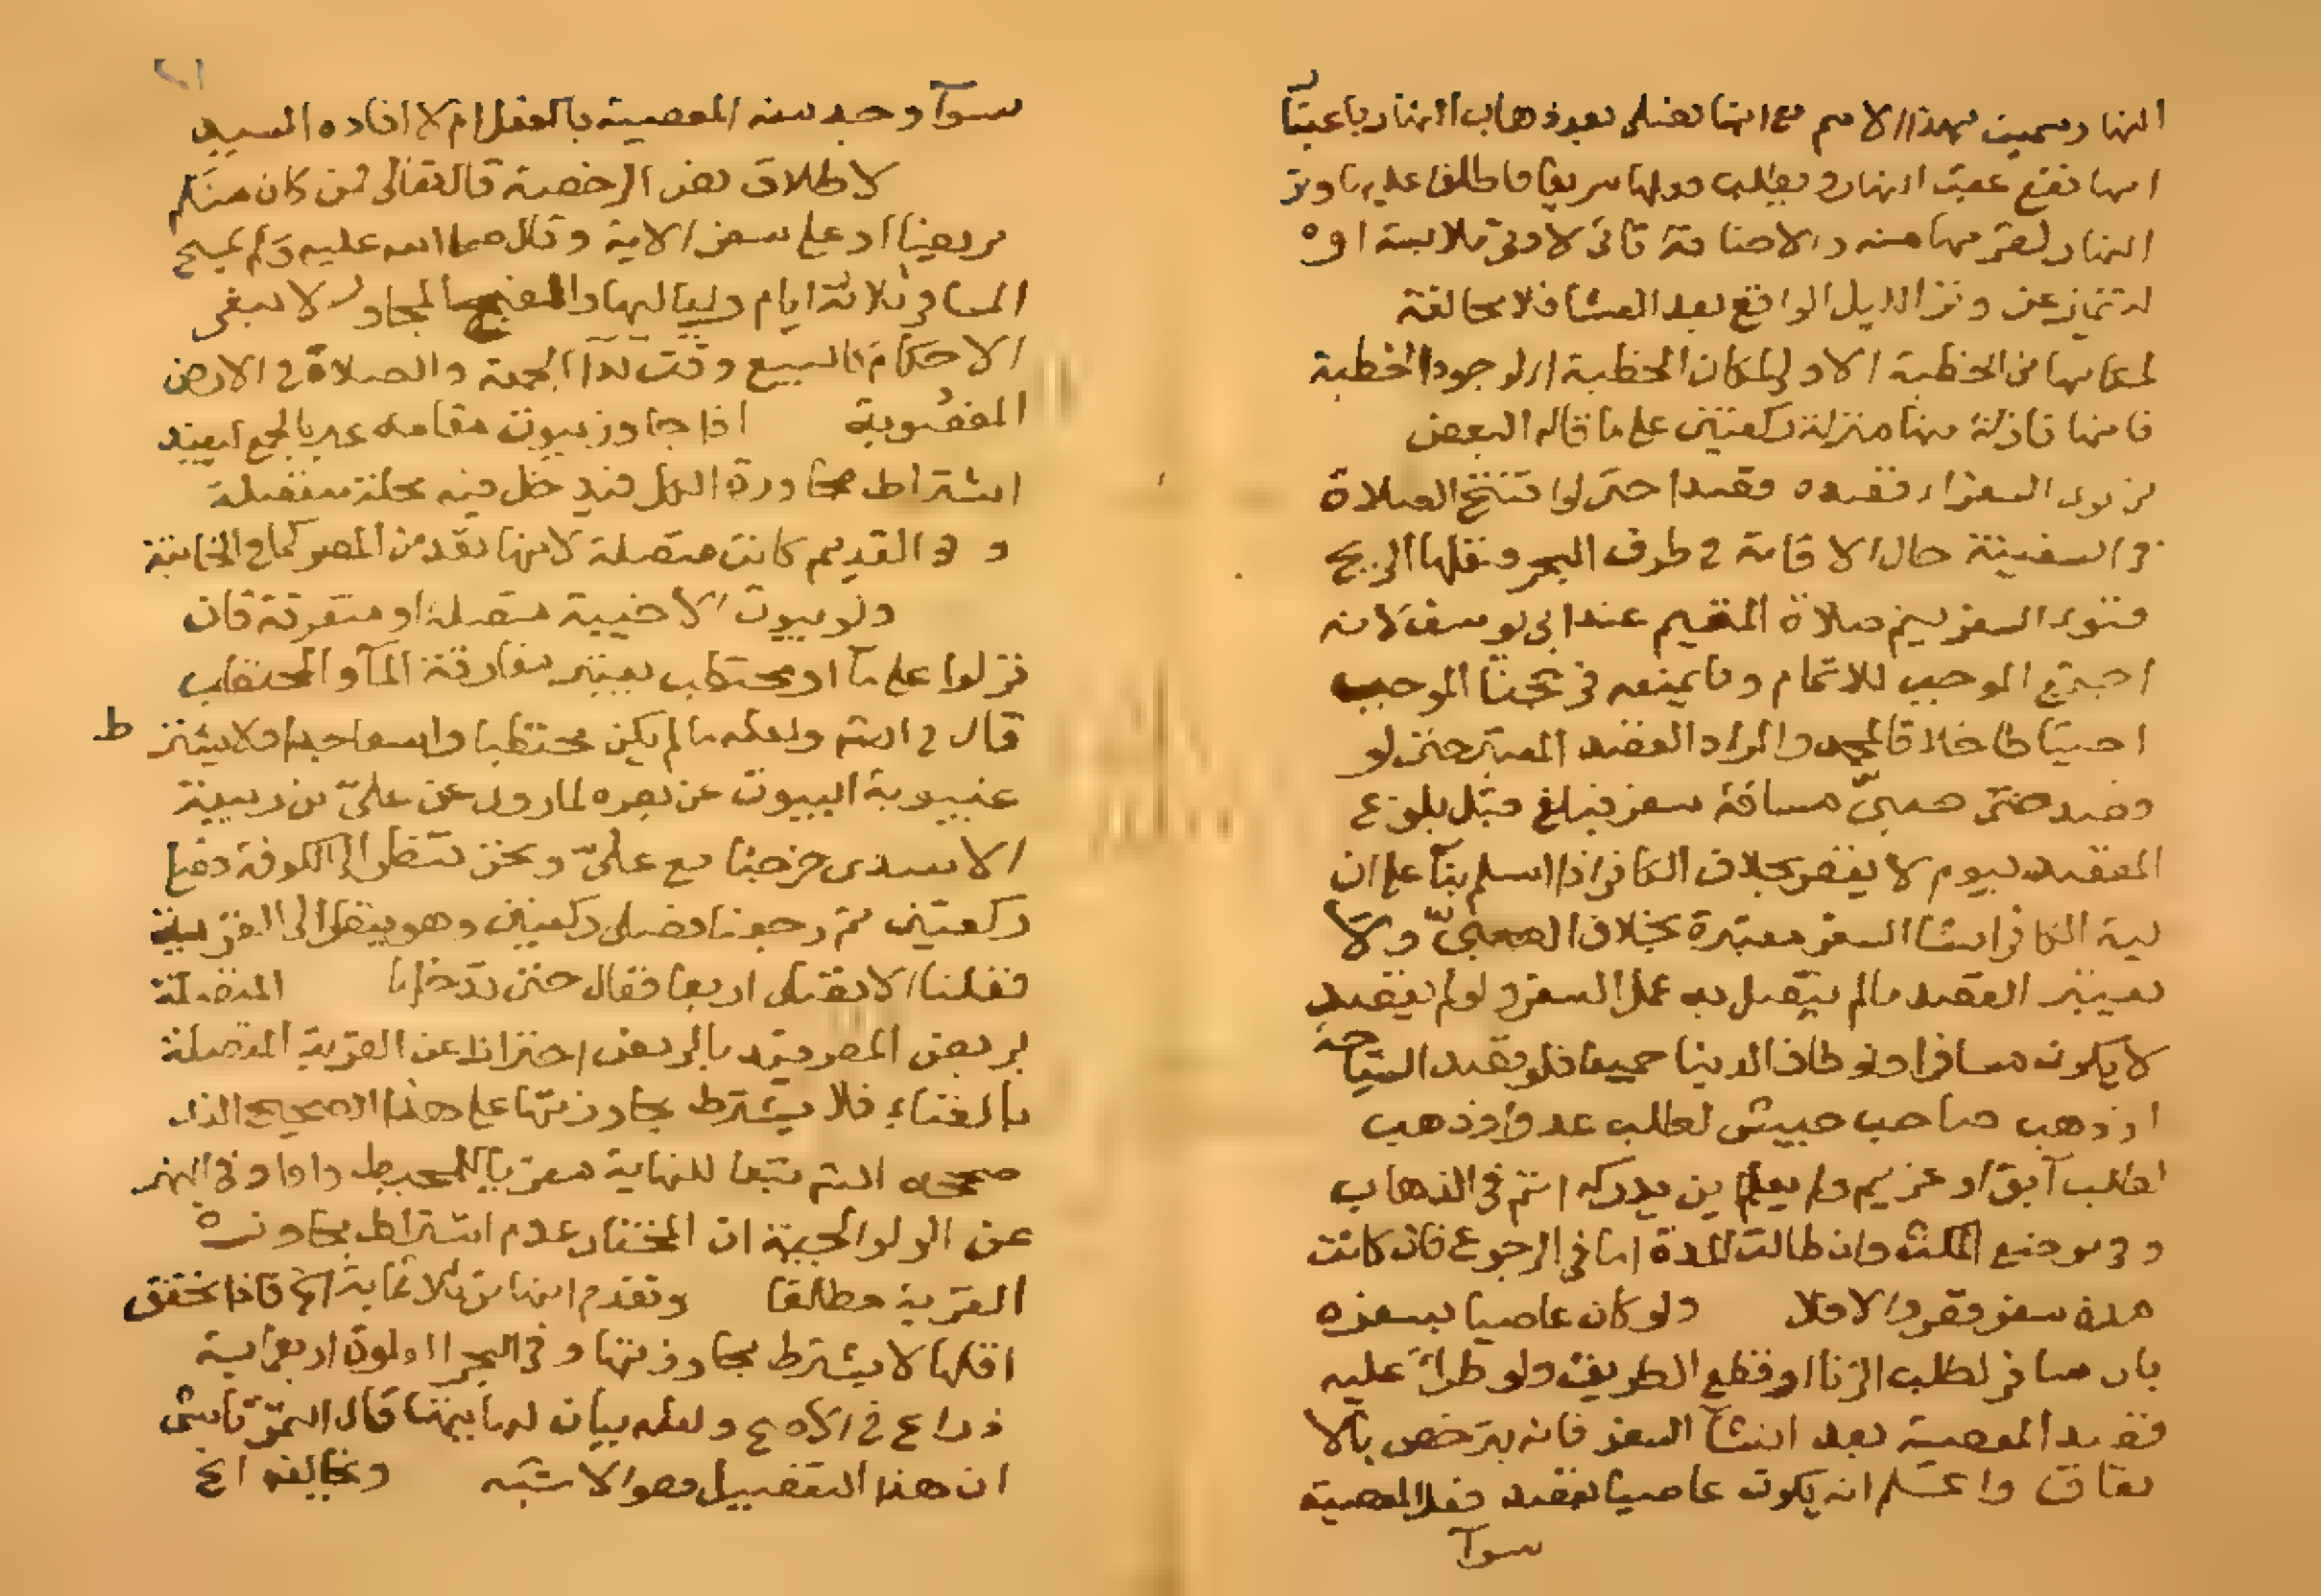 النهار وسميت بهذا الاسم مع انها تصلى بعد ذهاب النهار باعتبار
انها تقع عقب النهار ويطلب فعلها سريعا فاطلق عليها وتر
النهار لقربها منه والاضافة تاتى لادنى ملابسة اوه
لتتميز عن وتر الليل الواقع بعد العشا فلا مخالفة
لمكانها من الخطبة الاولى لمكان الخطبة اى لوجود الخطبة
فانها نازلة منها منزلة ركعتين على ما قاله البعض
من نوى السفر اى قصده قصدا حتى لو افتتح الصلاة
فى السفينة حال الاقامة فى طرف البحر ونقلها الريح
فنوى السفر يتم صلاة المقيم عند ابى يوسف لانه
اجتمع الموجب للاتمام وما يمنعه فرجحنا الموجب
احتياطا خلافا لمحمد والمراد القصد المعتبر حتى لو
قصد صبىّ مسافة سفر فبلغ قبل بلوغ
المقصد بيوم لا يقصر بخلاف الكافر اذا اسلم بنآ على ان
نية الكافر انشا السفر معتبرة بخلاف الصبىّ ولا
يعتبر القصد ما لم يتصل به عمل السفر ولو لم يقصد
لا يكون مسافرا ولو طاف الدنيا جميعا فلو قصد السياحة
او ذهب صاحب جيش لطلب عدو او ذهب
لطلب آبق او غريم ولم يعلم اين يدركه اتم فى الذهاب
وفى موضع المكث وان طالت المدة اما فى الرجوع فان كانت
مدة سفر قصر والا فلا ولو كان عاصيا بسفره
بان سافر لطلب الزنا او قطع الطريق ولو طرأ عليه
قصد المعصية بعد انشآ السفر فانه يترخص بالا
تفاق واعلم انه يكون عاصيا بقصد فعل المعصية
سوآ
سوآ وجد منه المعصية بالفعل ام لا افاده السيد
لاطلاق نص الرخصة قال تعالى فمن كان منكم
مريضا او على سفر الاية وقال صلى الله عليه وسلم يمسح
المسافر ثلاثة ايام ولياليها والقبح المجاور لا ينفى
الاحكام كالبيع وقت ندآ الجمعة والصلاة فى الارض
المغصوبة اذا جاوز بيوت مقامه عبر بالجمع ليفيد
اشتراط مجاوزة الكل فيدخل فيه محلة منفصلة
وفى القديم كانت متصلة لانها تعد من المصر كما فى الخانية
ولو بيوت الاخبية متصلة او متفرقة فان
نزلوا على مآ او محتطب يعتبر مفارقة المآ والمحتطب
قال فى النهر ولعله ما لم يكن محتطبا واسعا جدا ولا يشتر ط
غيبوبة البيوت عن بصره لما روى عن علىّ بن ربيعة
الاسدى خرجنا مع علىّ ونحن ننظر الى الكوفة فصلى
ركعتين ثم رجعنا فصلى ركعتين وهو ينظر الى القرية
فقلنا الا تصلى اربعا فقال حتى ندخلها المتصلة
بربض المصر قيد بالربض احترازا عن القرية المتصلة
بالفناء فلا يشترط مجاوزتها على هذا الصحيح الذى
صححه النهر تبعا للنهاية معزيا للمحيط وافاد فى النهر
عن الولوالجية ان المختار عدم اشتراط مجاوزة
القرية مطلقا وتقدم انها من ثلاثماية الخ فاذا تحقق
اقلها لا يشترط مجاوزتها وفى البحر الغلوة اربعماية
ذراع فى الاصح ولعله بيان لما بينهما قال التمرتاشى
ان هذا التفصيل وهو الاشبه ويخالفه الخ